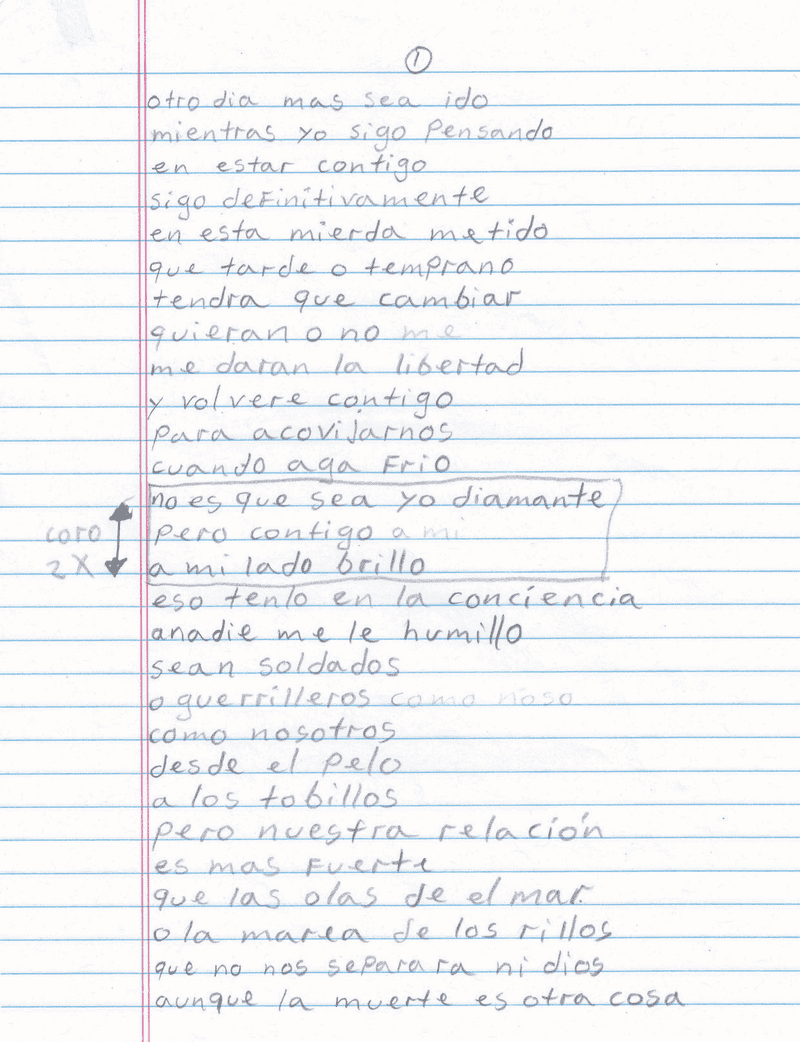 1
otro dia mas sea ido
mientras yo sigo Pensando
en estar contigo
sigo definitivamente
en esta mierda metido
que tarde o temprano
tendra que cambiar
quieran o no me
me daran la libertad
y volvere contigo
para acovijarnos
cuando aga Frio
no es que sea yo diamante
coro pero contigo a mi
2X a mi lado brillo
eso tenlo en la conciencia
anadie me le humillo
sean soldados
o guerrilleros como noso
como nosotros
desde el pelo
a los tobillos
pero nuestra relación
es mas Fuerte
que las olas de el mar
o la marea de los rillos
que no nos separara ni dios
aunque la muerte es otra cosa